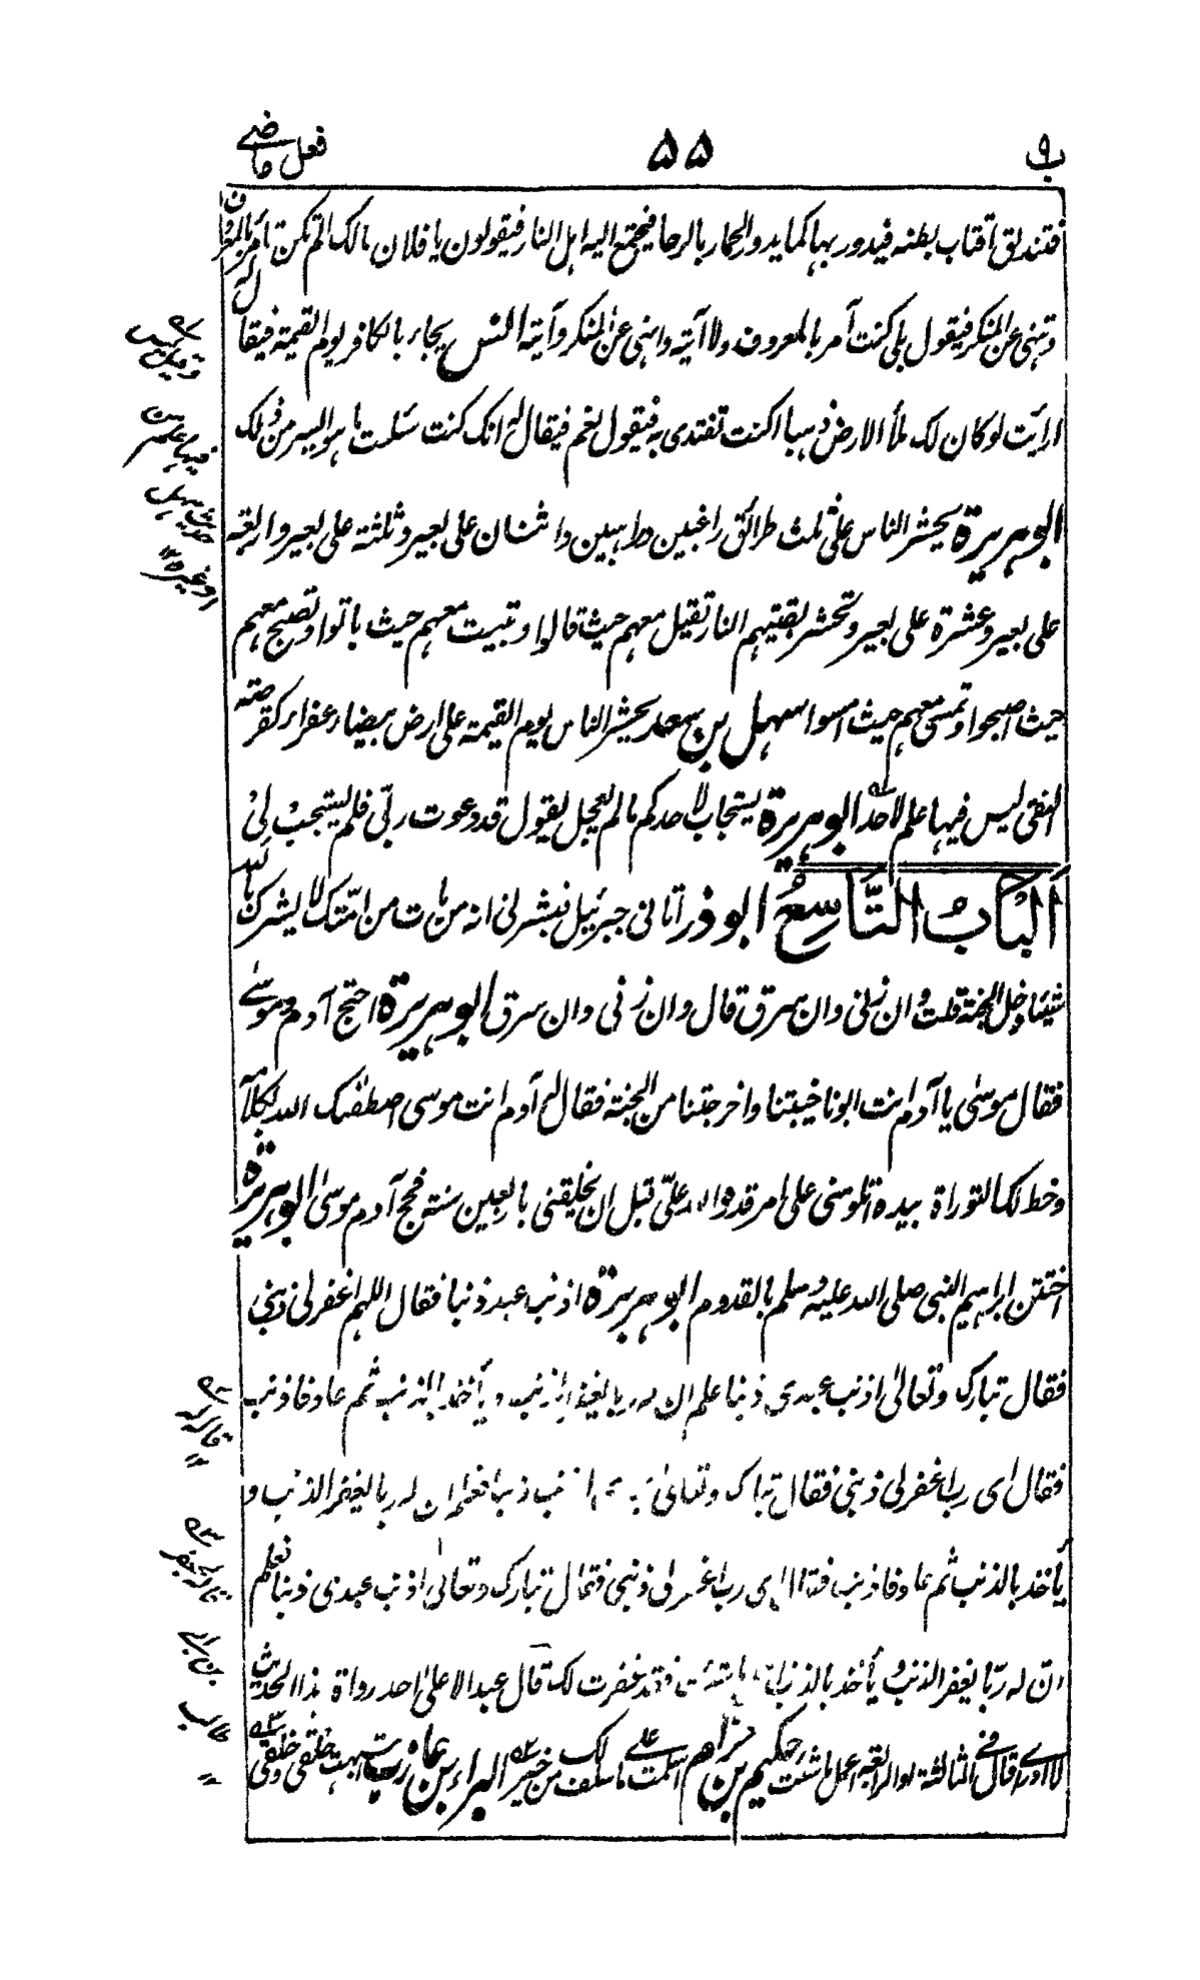 ب ٩
٥٥
فعل ماضے
فتندلق اقتاب بطنه فيدور بها كما يدور الحمار بالرحا فيجتمع اليه اهل النار فيقولون يا فلان مالك الم تكن تأمر بالمعروف
وتنهى عن المنكر فيقول بلى كنت آمر بالمعروف ولا آتيه وانهى عن المنكر وآتيه انس يجاء بالكافر يوم القيمة فيقال له
ارأيت لو كان لك ملأ الارض ذهبا اكنت تفتدى به فيقول نعم فيقال له انك كنت سئلت ما هو ايسر من ذلك
ابو هريرة يحشر الناس على ثلث طرائق راغبين راهبين واثنان على بعير وثلثة على بعير واربعة
على بعير وعشرة على بعير وتحشر بقيتهم النار تقيل معهم حيث قالوا وتبيت معهم حيث باتوا وتصبح معهم
حيث اصبحوا وتمسى معهم حيث امسوا سهل بن سعد يحشر الناس يوم القيمة على ارض بيضاء عفراء كقرصة
النقى ليس فيها علم لاحد ابو هريرة يستجاب لاحدكم ما لم يعجل يقول قد دعوت ربى فلم يستجب لى
اَلْبَابُ التَّاسِعُ ابو ذر اتانى جبرئيل فبشرنى انه من مات من امتك لا يشرك بالله
شيئا دخل الجنة قلت وان زنى وان سرق قال وان زنى وان سرق ابو هريرة احتج آدم وموسى
فقال موسى يا آدم انت ابونا خيبتنا واخرجتنا من الجنة فقال له آدم انت موسى اصطفاك الله بكلامه
وخط لك التوراة بيده اتلومنى على امر قدره الله علىّ قبل ان يخلقنى باربعين سنة فحج آدم موسى ابو هريرة
اختتن ابراهيم النبى صلى الله عليه وسلم بالقدوم ابو هريرة اذنب عبد ذنبا فقال اللهم اغفر لى ذنبى
فقال تبارك وتعالى اذنب عبدى ذنبا علم ان له ربا يغفر الذنب ويأخذ بالذنب ثم عاد فاذنب
فقال اى رب اغفر لى ذنبى فقال تبارك وتعالى ذنبا فعلم ان له ربا يغفر الذنب و
يأخذ بالذنب ثم عاد فاذنب فقال اى رب اغفر لى ذنبى فقال تبارك وتعالى اذنب عبدى ذنبا فعلم
ان له ربّا يغفر الذنب ويأخذ بالذنب فقد غفرت لك قال عبد الاعلى احد رواة هذا الحديث
لا ادرى اقال فى الثالثة او الرابعة اعمل ما شئت حكيم بن حزام اسلمت على ما سلف لك من خير البراء بن عازب اشبهت خلقى وخلقى
ليس
فيها علم من
حديث سهل
او غيره
قاله
قاله لجعفر
بن ابى
طالب